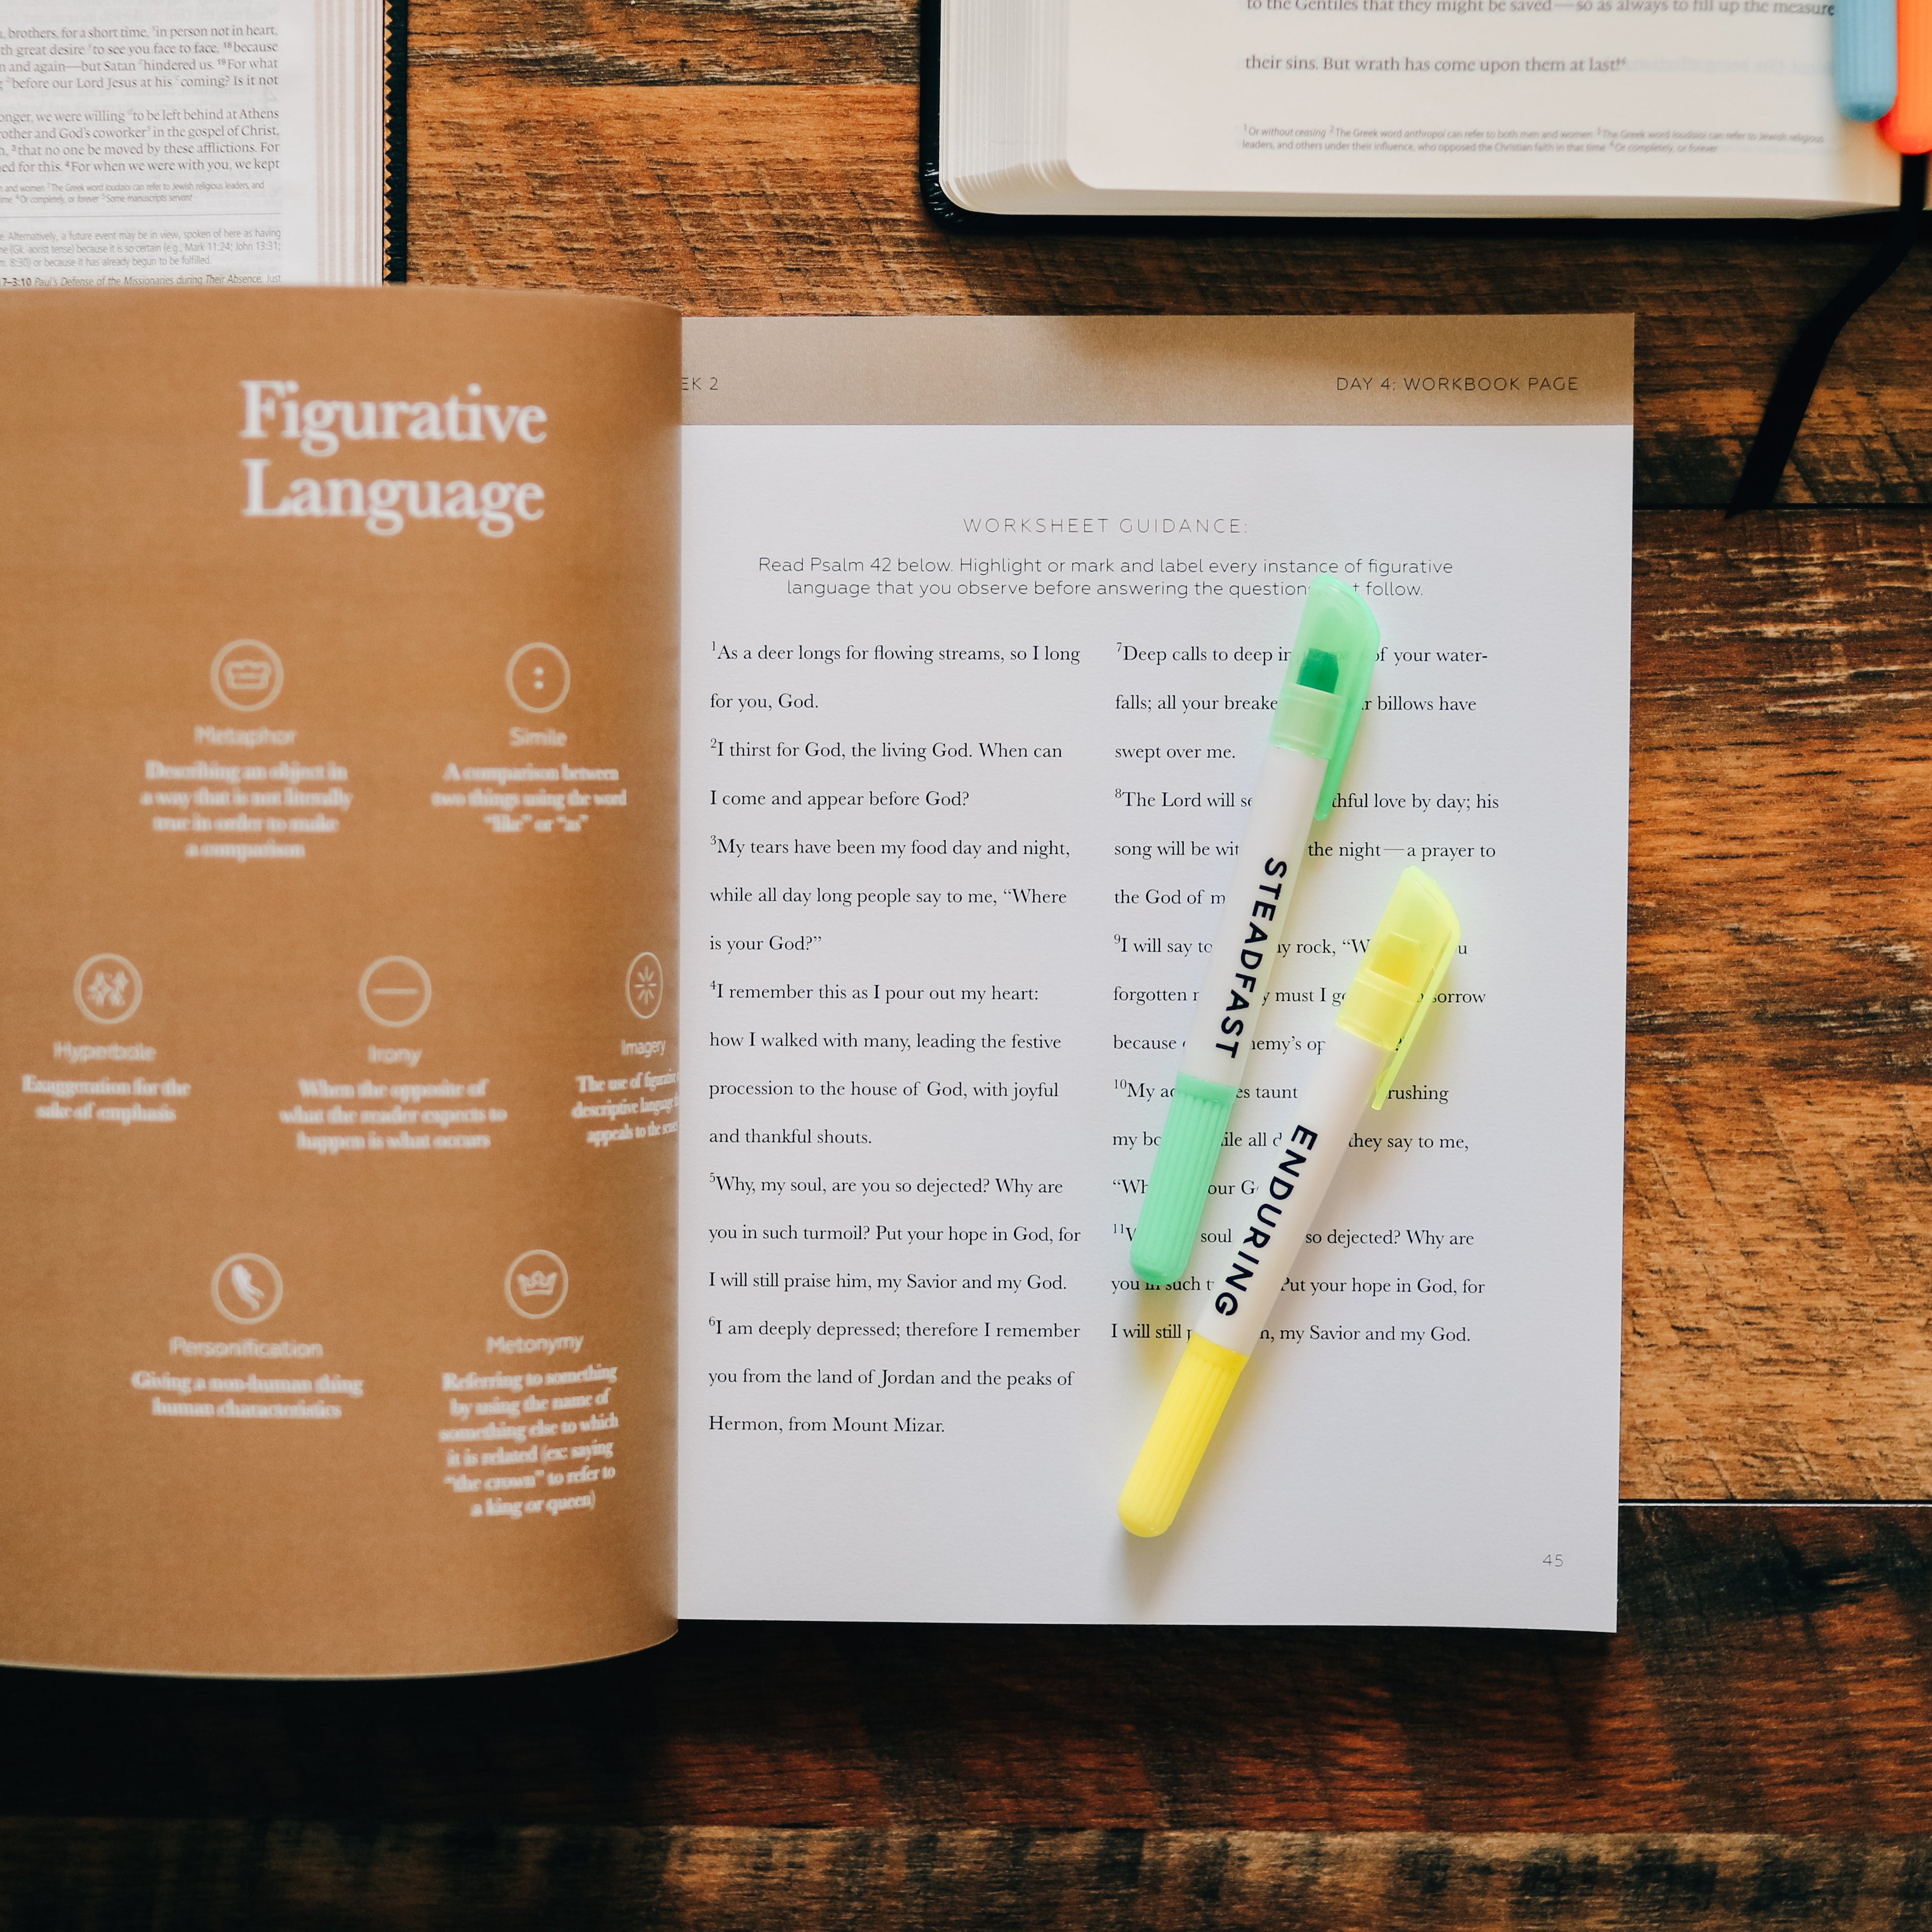 brothers, for a short time, in person not in heart,
th great desire to see you face to face, 18 because
n and again—but Satan hindered us. 19 For what
before our Lord Jesus at his coming? Is it not
onger, we were willing to be left behind at Athens
other and God's coworker in the gospel of Christ,
3 that no one be moved by these afflictions. For
ed for this. 4 For when we were with you, we kept
and women 2 The Greek word ioudaioi can refer to Jewish religious leaders, and
4 Or completely, or forever 5 Some manuscripts servant
Alternatively, a future event may be in view, spoken of here as having
(Gk. aorist tense) because it is so certain (e.g., Mark 11:24; John 13:31;
8:30) or because it has already begun to be fulfilled.
7–3:10 Paul's Defense of the Missionaries during Their Absence. Just
to the Gentiles that they might be saved—so as always to fill up the measure
their sins. But wrath has come upon them at last!
1 Or without ceasing 2 The Greek word anthropoi can refer to both men and women 3 The Greek word ioudaioi can refer to Jewish religious
leaders, and others under their influence, who opposed the Christian faith in that time 4 Or completely, or forever
Figurative
Language
Metaphor
Describing an object in
a way that is not literally
true in order to make
a comparison
Simile
A comparison between
two things using the word
“like” or “as”
Hyperbole
Exaggeration for the
sake of emphasis
Irony
When the opposite of
what the reader expects to
happen is what occurs
Imagery
The use of figurative
descriptive language
appeals to the
Personification
Giving a non-human thing
human characteristics
Metonymy
Referring to something
by using the name of
something else to which
it is related (ex: saying
“the crown” to refer to
a king or queen)
EK 2
DAY 4: WORKBOOK PAGE
WORKSHEET GUIDANCE:
Read Psalm 42 below. Highlight or mark and label every instance of figurative
language that you observe before answering the question t follow.
1 As a deer longs for flowing streams, so I long
for you, God.
2 I thirst for God, the living God. When can
I come and appear before God?
3 My tears have been my food day and night,
while all day long people say to me, “Where
is your God?”
4 I remember this as I pour out my heart:
how I walked with many, leading the festive
procession to the house of God, with joyful
and thankful shouts.
5 Why, my soul, are you so dejected? Why are
you in such turmoil? Put your hope in God, for
I will still praise him, my Savior and my God.
6 I am deeply depressed; therefore I remember
you from the land of Jordan and the peaks of
Hermon, from Mount Mizar.
7 Deep calls to deep in of your water-
falls; all your breake r billows have
swept over me.
8 The Lord will se thful love by day; his
song will be wit the night—a prayer to
the God of m
9 I will say to y rock, “W u
forgotten y must I go sorrow
because nemy's op ?
10 My ad es taunt rushing
my bo ile all d they say to me,
“Wh our G
11 W soul so dejected? Why are
you in such t Put your hope in God, for
I will still p m, my Savior and my God.
STEADFAST
ENDURING
45